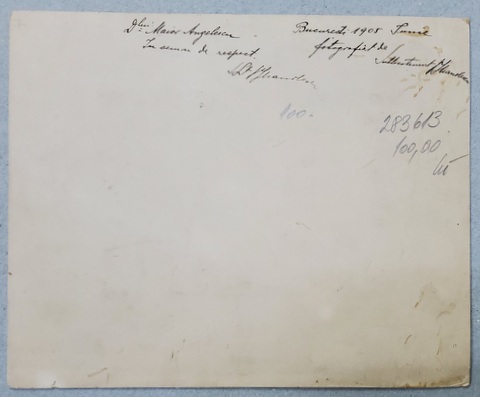 Dlui Maior Angelescu
In semn de respect.
Bucuresti 1908 Iunie
fotografiat de
Sublocotenent
100.-
283613
100,00